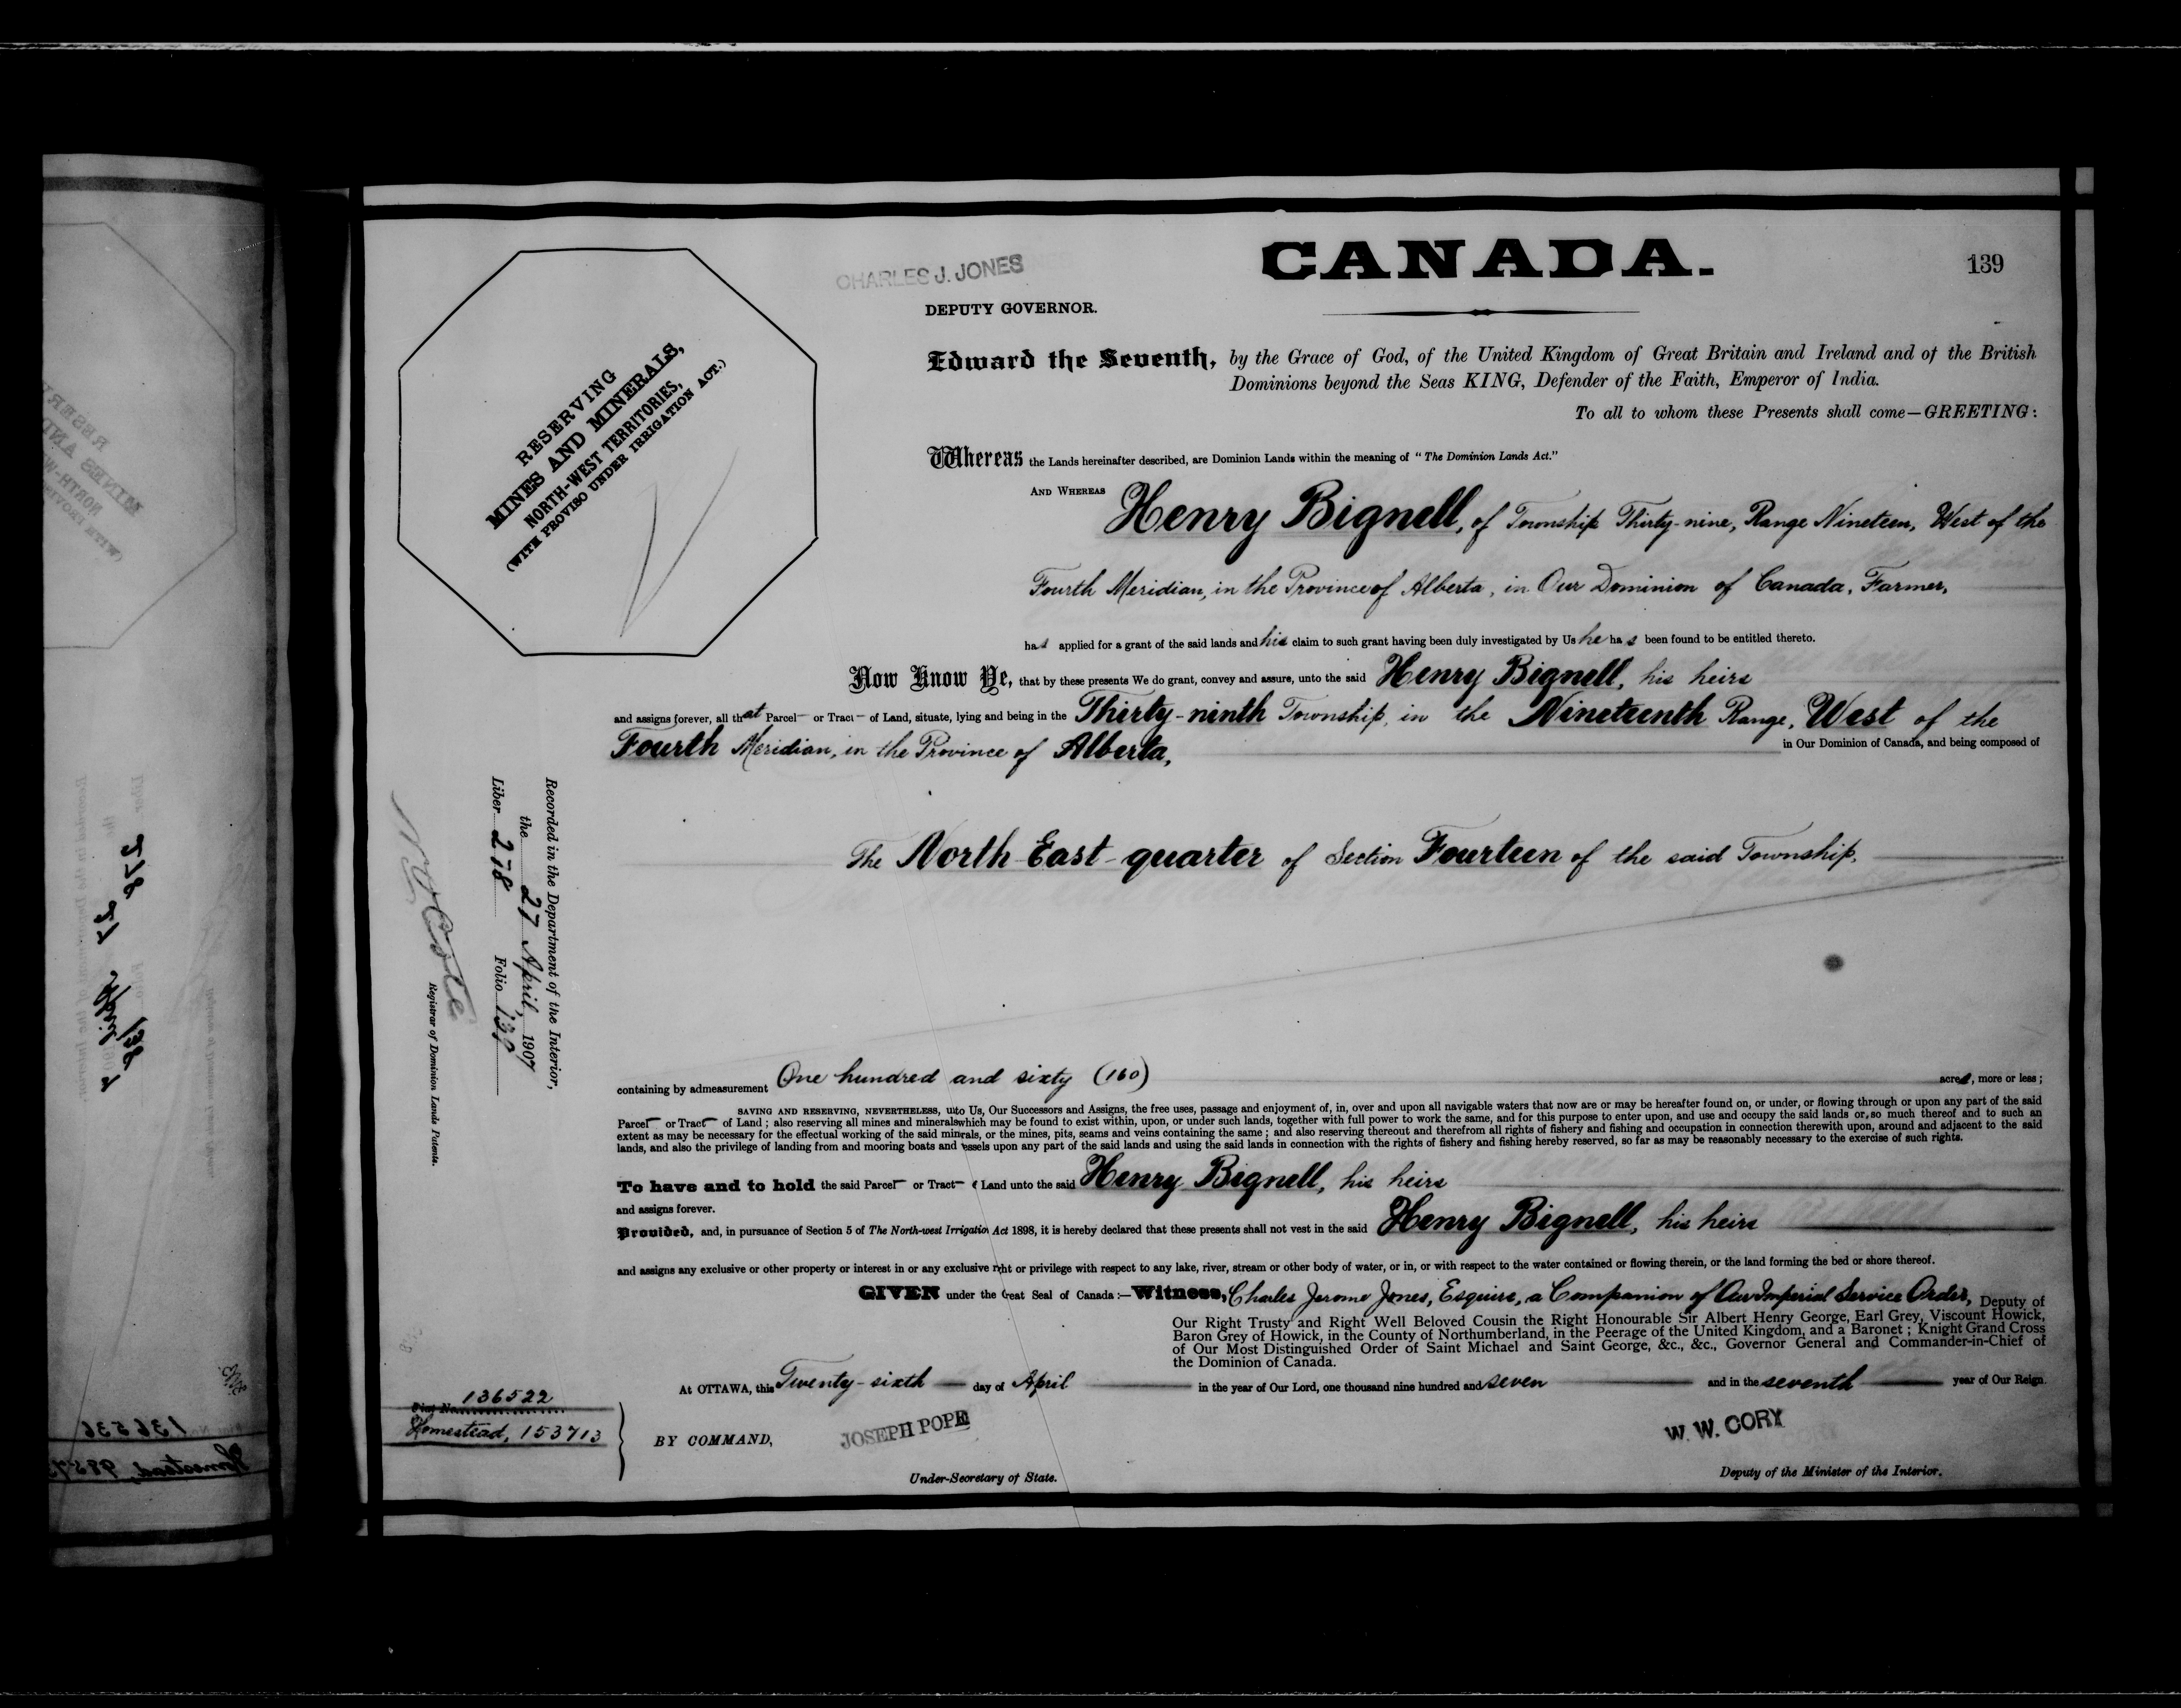 CHARLES J. JONES
CANADA.
139
DEPUTY GOVERNOR.
RESERVING
MINES AND MINERALS,
NORTH-WEST TERRITORIES,
(WITH PROVISO UNDER IRRIGATION ACT.)
Edward the Seventh, by the Grace of God, of the United Kingdom of Great Britain and Ireland and of the British
Dominions beyond the Seas KING, Defender of the Faith, Emperor of India.
To all to whom these Presents shall come—GREETING:
Whereas the Lands hereinafter described, are Dominion Lands within the meaning of "The Dominion Lands Act."
AND WHEREAS Henry Bignell, of Township Thirty-nine, Range Nineteen, West of the
Fourth Meridian, in the Province of Alberta, in Our Dominion of Canada, Farmer,
has applied for a grant of the said lands and his claim to such grant having been duly investigated by Us he has been found to be entitled thereto.
Now Know Ye, that by these presents We do grant, convey and assure, unto the said Henry Bignell, his heirs
and assigns forever, all that Parcel or Tract of Land, situate, lying and being in the Thirty-ninth Township, in the Nineteenth Range, West of the
Fourth Meridian, in the Province of Alberta, in Our Dominion of Canada, and being composed of
The North East-quarter of Section Fourteen of the said Township.
Recorded in the Department of the Interior,
the 27 April, 1907
Liber 278 Folio 139
N O Coté
Registrar of Dominion Lands Patents.
containing by admeasurement One hundred and sixty (160) acres, more or less;
SAVING AND RESERVING, NEVERTHELESS, unto Us, Our Successors and Assigns, the free uses, passage and enjoyment of, in, over and upon all navigable waters that now are or may be hereafter found on, or under, or flowing through or upon any part of the said
Parcel or Tract of Land; also reserving all mines and minerals which may be found to exist within, upon, or under such lands, together with full power to work the same, and for this purpose to enter upon, and use and occupy the said lands or, so much thereof and to such an
extent as may be necessary for the effectual working of the said minerals, or the mines, pits, seams and veins containing the same; and also reserving thereout and therefrom all rights of fishery and fishing and occupation in connection therewith upon, around and adjacent to the said
lands, and also the privilege of landing from and mooring boats and vessels upon any part of the said lands and using the said lands in connection with the rights of fishery and fishing hereby reserved, so far as may be reasonably necessary to the exercise of such rights.
To have and to hold the said Parcel or Tract of Land unto the said Henry Bignell, his heirs
and assigns forever.
Provided, and, in pursuance of Section 5 of The North-west Irrigation Act 1898, it is hereby declared that these presents shall not vest in the said Henry Bignell, his heirs
and assigns any exclusive or other property or interest in or any exclusive right or privilege with respect to any lake, river, stream or other body of water, or in, or with respect to the water contained or flowing therein, or the land forming the bed or shore thereof.
GIVEN under the Great Seal of Canada:—Witness, Charles Jerome Jones, Esquire, a Companion of Our Imperial Service Order, Deputy of
Our Right Trusty and Right Well Beloved Cousin the Right Honourable Sir Albert Henry George, Earl Grey, Viscount Howick,
Baron Grey of Howick, in the County of Northumberland, in the Peerage of the United Kingdom, and a Baronet; Knight Grand Cross
of Our Most Distinguished Order of Saint Michael and Saint George, &c., &c., Governor General and Commander-in-Chief of
the Dominion of Canada.
At OTTAWA, this Twenty-sixth day of April in the year of Our Lord, one thousand nine hundred and seven and in the seventh year of Our Reign.
136522
Homestead, 153713
BY COMMAND,
JOSEPH POPE
Under-Secretary of State.
W. W. CORY
Deputy of the Minister of the Interior.